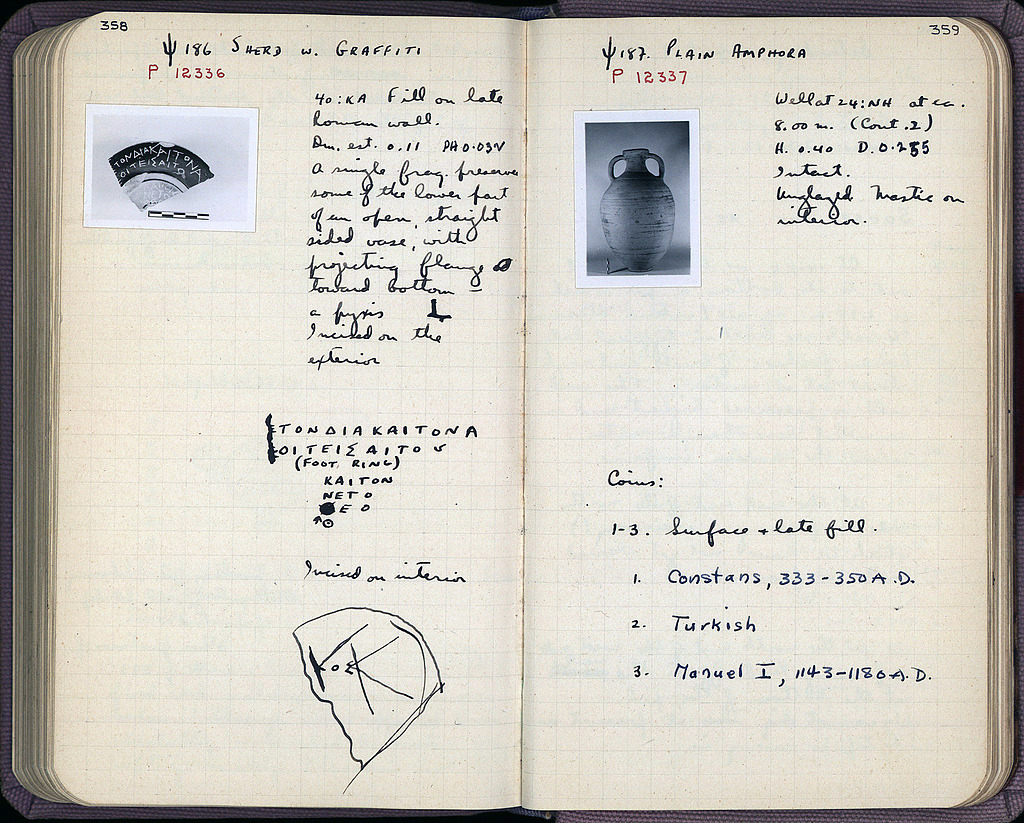 358
ψ 186 SHERD W. GRAFFITI
P 12336
40:KA Fill on late
Roman wall.
Dm. est. 0.11 PH 0.032
A single frag. preserves
some of the lower part
of an open, straight
sided vase, with
projecting flange
toward bottom –
a pyxis
Incised on the
exterior
ΤΟΝΔΙΑΚΑΙΤΟΝΑ
ΟΙΤΕΙΣΑΙΤΟ
(FOOT RING)
ΚΑΙΤΟΝ
ΝΕΤΟ
ΕΟ
Incised on interior
ΚΟΣ
359
ψ 187. PLAIN AMPHORA
P 12337
Well at 24:NH at ca.
8.00 m. (Cont. 2)
H. 0.40 D. 0.255
Intact.
Unglazed Mastic on
interior.
Coins:
1-3. Surface + late fill.
1. Constans, 333-350 A.D.
2. Turkish
3. Manuel I, 1143-1180 A.D.